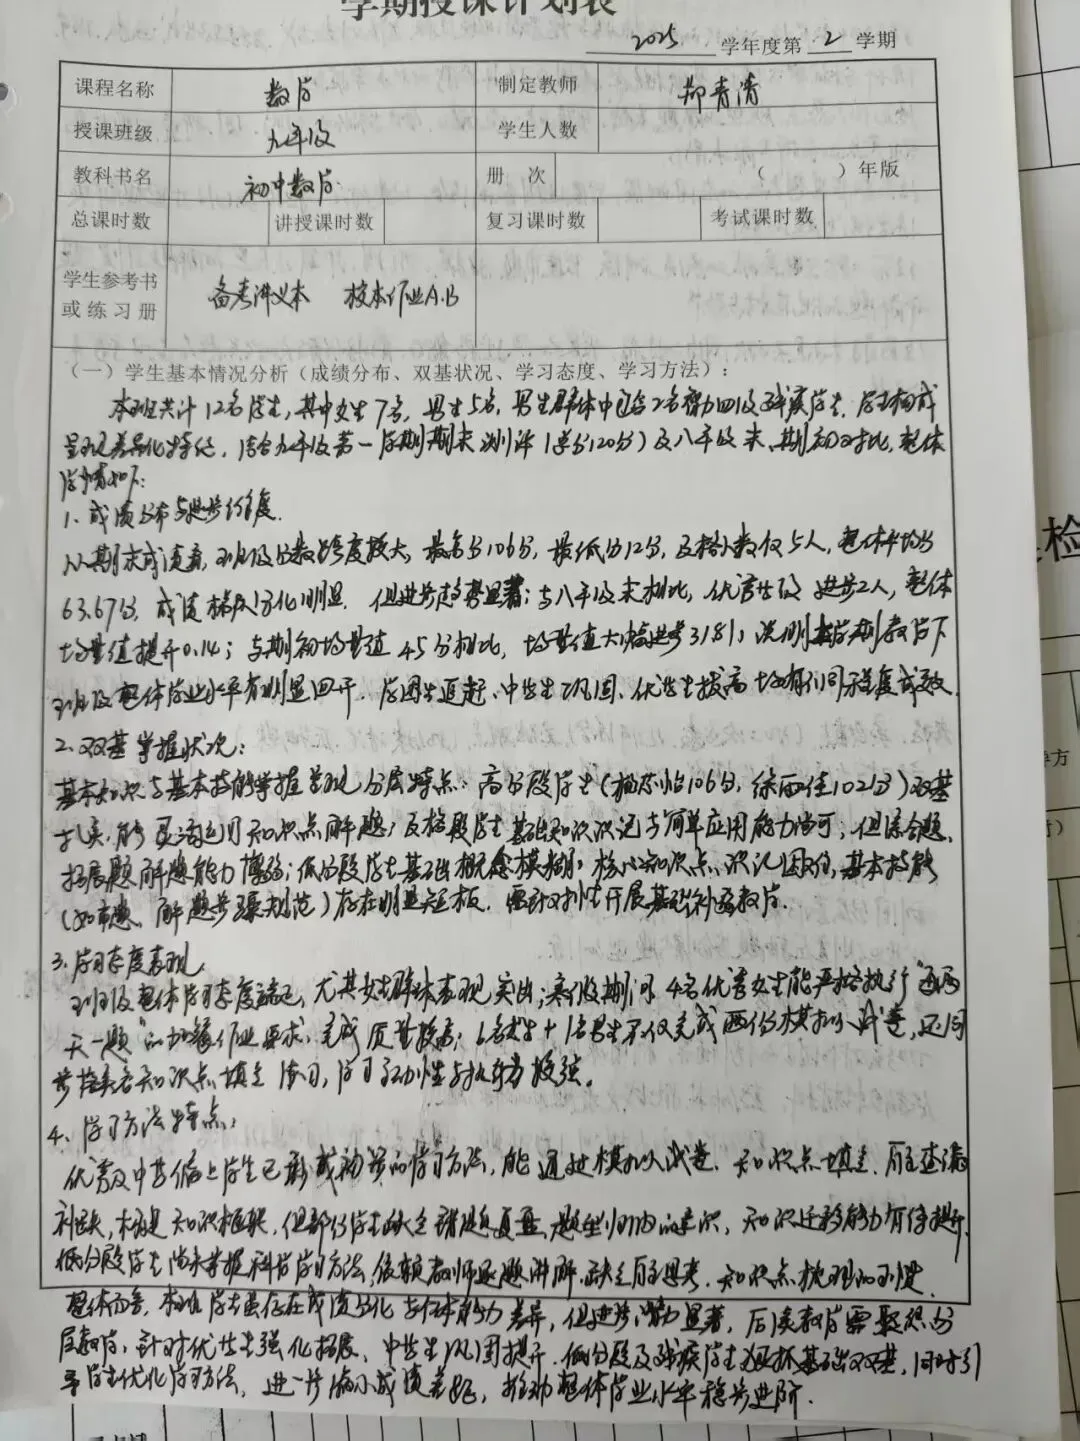 学期授课计划表
2025 学年度第 2 学期
课程名称 数学 制定教师 郑青清
授课班级 九年级 学生人数
教科书名 初中数学 册 次 （ ）年版
总课时数 讲授课时数 复习课时数 考试课时数
学生参考书
或练习册 备考讲义本 校本作业A.B
（一）学生基本情况分析（成绩分布、双基状况、学习态度、学习方法）：
本班共计12名学生，其中女生7名，男生5名，男生群体中包含2名智力四级残疾学生，学生构成
呈现差异化特征，结合九年级第一学期期末测评（总分120分）及八年级末、期初对比，整体
学情如下：
1、成绩分布与进步维度
从期末成绩看，班级分数跨度较大，最高分106分，最低分12分，及格人数仅5人，整体平均分
63.67分，成绩梯度分化明显，但进步趋势显著；与八年级末相比，优秀学段进步2人，整体
均量值提升0.14；与期初均量值45分相比，均量值大幅进步3181，说明本学期教学下
班级整体学业水平有明显回升，学困生追赶、中等生巩固、优等生拔高均有不同程度成效
2、双基掌握状况：
基本知识与基本技能掌握呈现分层特点：高分段学生（106分，徐雨佳102分）双基
扎实，能灵活运用知识点解题；及格段学生基础知识识记与简单应用能力尚可，但综合题、
拓展题解题能力薄弱；低分段学生基础概念模糊，核心知识点识记困难，基本技能
（如审题、解题步骤规范）存在明显短板，需针对性开展基础补弱教学。
3、学习态度表现
班级整体学习态度端正，尤其女生群体表现突出；寒假期间4名优秀女生能严格执行“
天一题”的作业要求，完成质量较高；6名女生+1名男生不仅完成两份模拟试卷，还同
步指来各知识点填空练习，学习主动性与执行力较强。
4、学习方法特点：
优秀及中等偏上学生已形成初步的学习方法，能通过模拟试卷、知识点填空，自主查漏
补缺，构建知识框架，但部分学生缺乏错题复盘、题型归纳的意识，知识迁移能力有待提升，
低分段学生尚未掌握科学学习方法，依赖教师逐题讲解，缺乏自主思考、知识点梳理的习惯
整体而言，本班学生虽存在成绩分化与个体能力差异，但进步潜力显著，后续教学需聚焦分
层教学，针对优等生强化拓展、中等生巩固提升、低分段及残疾学生狠抓基础双基，同时引
导学生优化学习方法，进一步缩小成绩差距，推动整体学业水平稳步进阶．
检